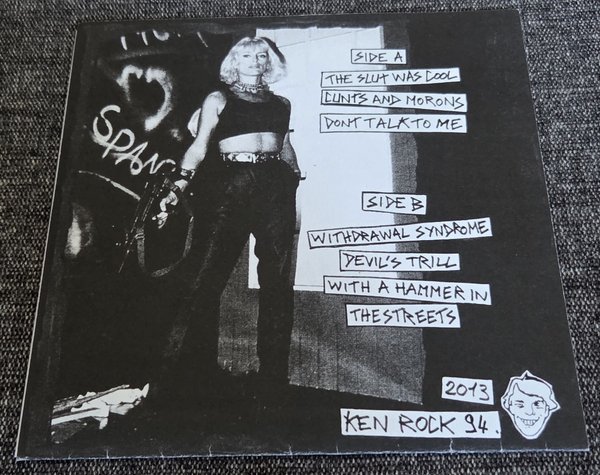 SPAN
SIDE A
THE SLUT WAS COOL
CUNTS AND MORONS
DONT TALK TO ME
SIDE B
WITHDRAWAL SYNDROME
DEVIL'S TRILL
WITH A HAMMER IN
THE STREETS
2013
KEN ROCK 94.